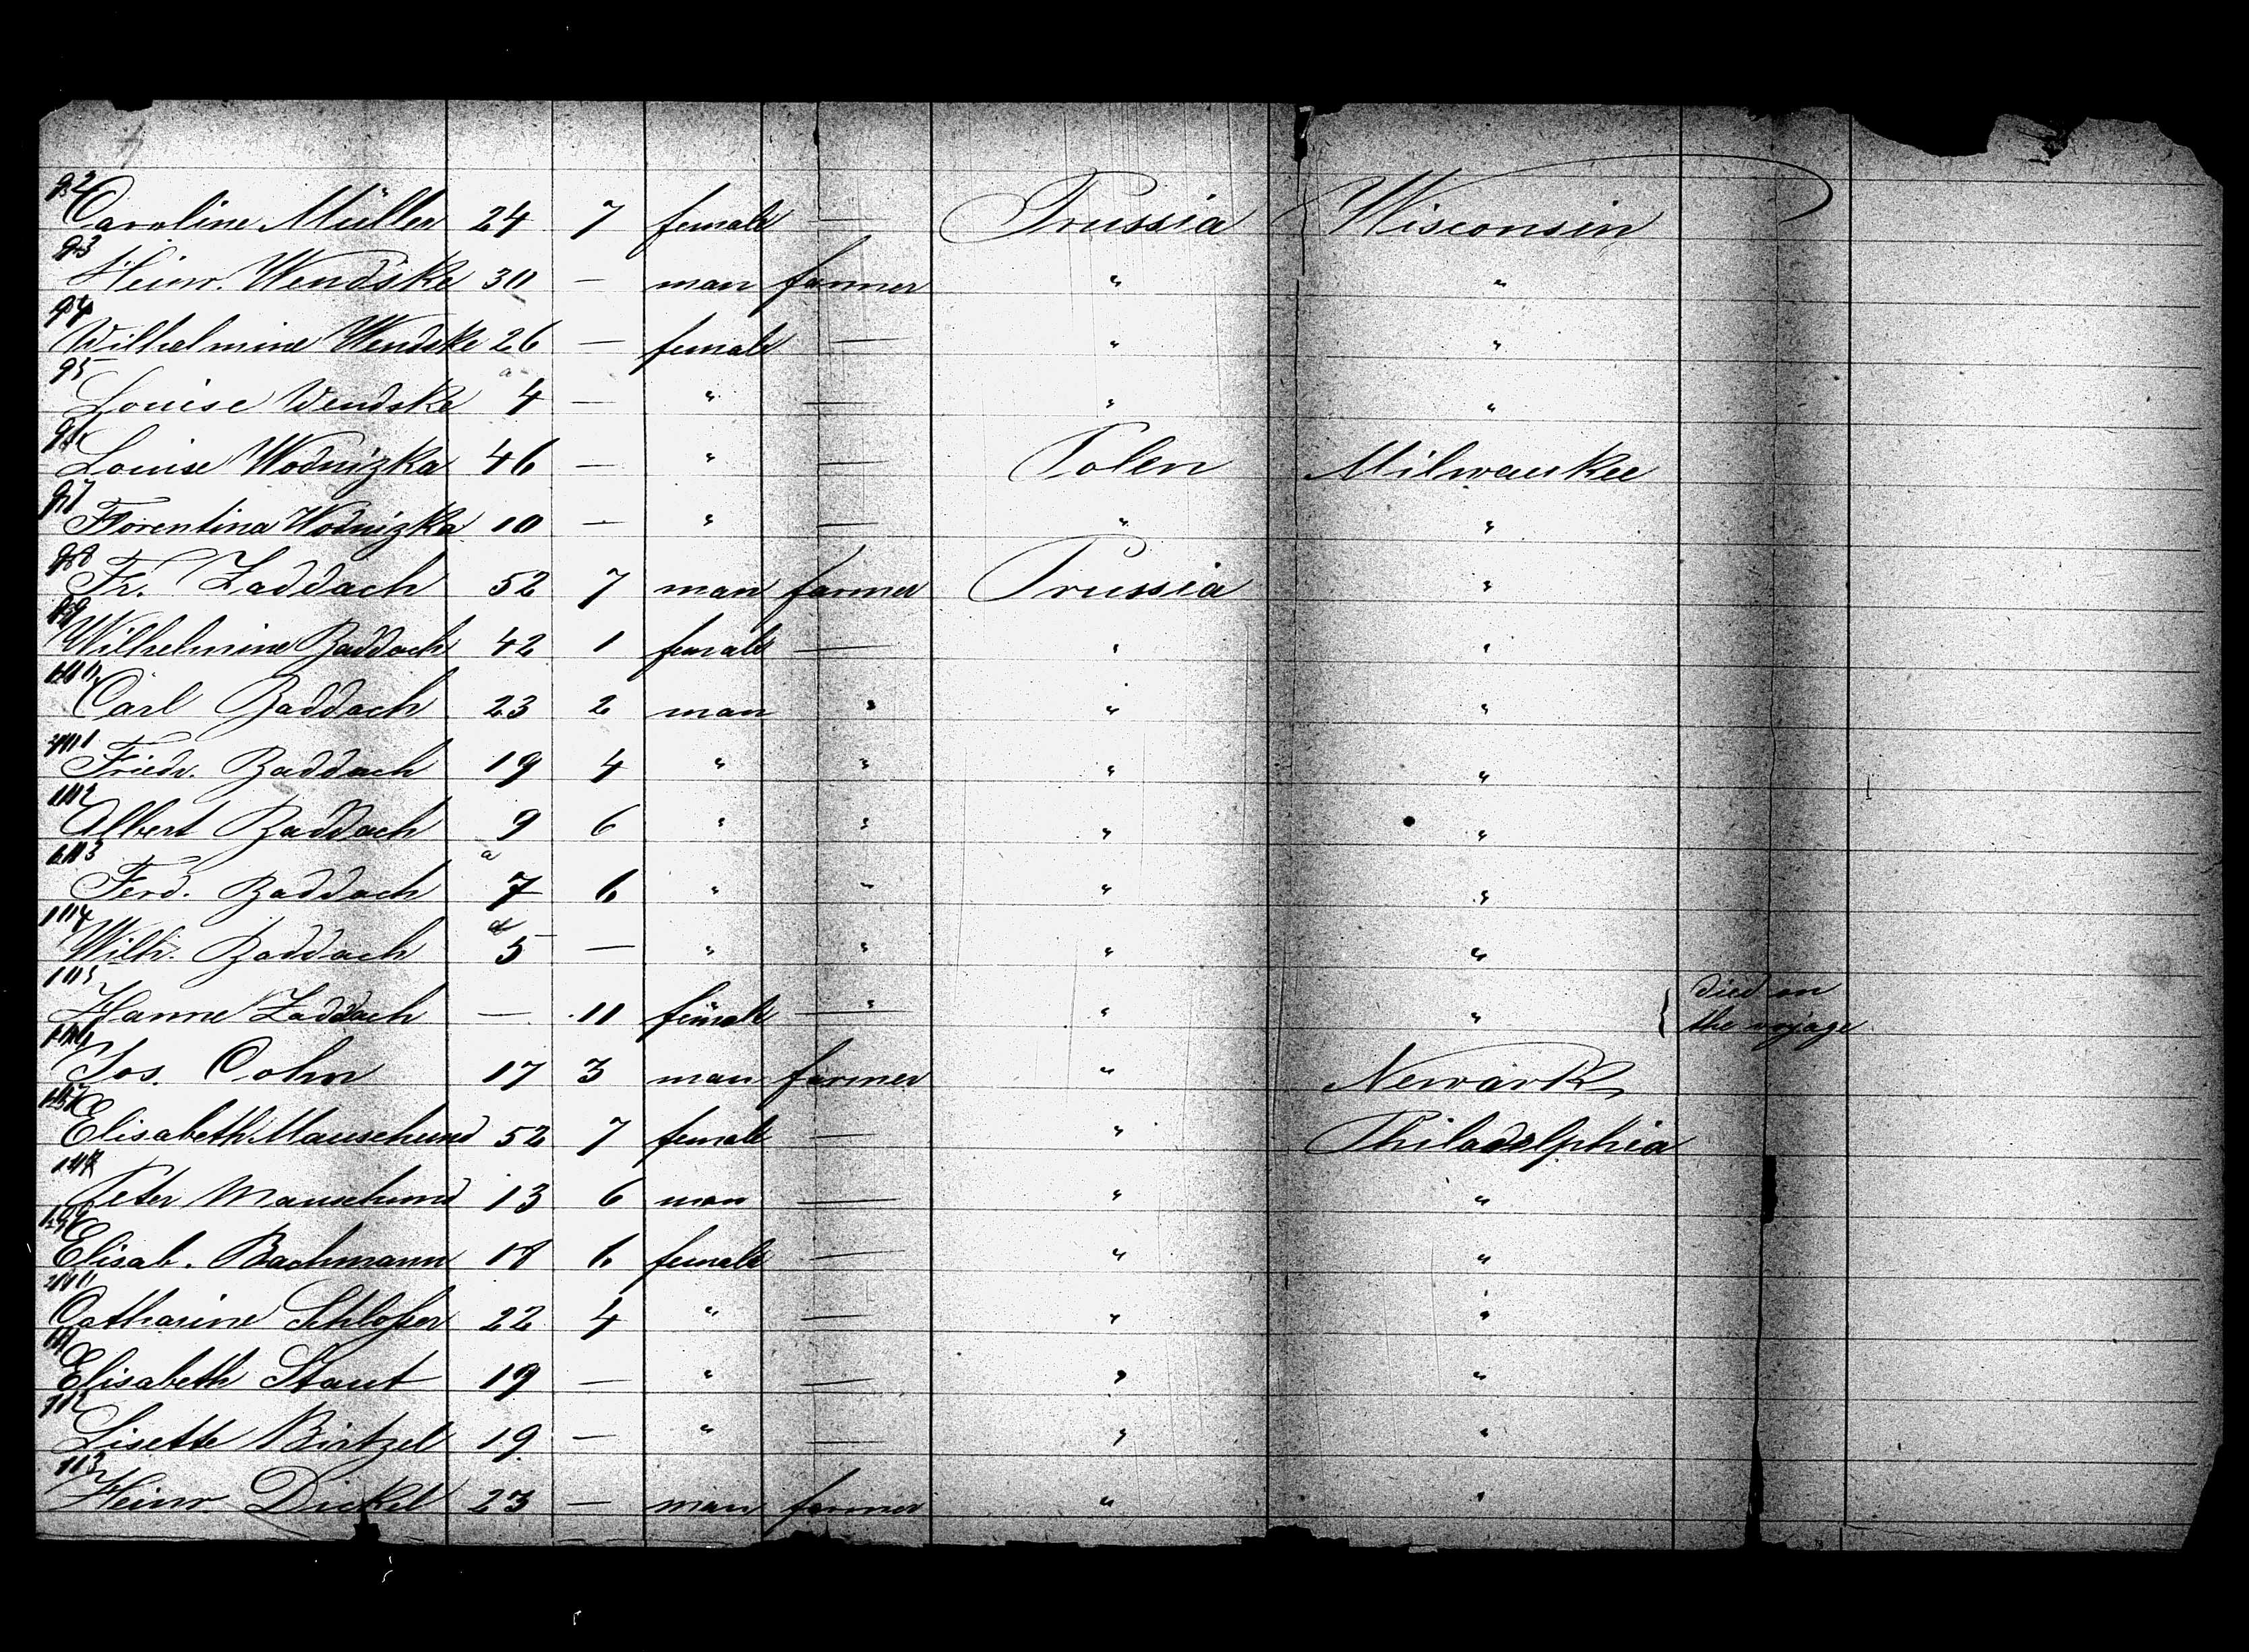 92 Caroline Müller 24 7 female — Prussia Wisconsin
93 Heinr. Wendske 30 — man farmer " "
94 Wilhelmine Wendske 26 — female — " "
95 Louise Wendske 4 — " — " "
96 Louise Wodnizka 46 — " — Polen Milwaukee
97 Florentina Wodnizka 10 — " — " "
98 Fr. Zaddach 52 7 man farmer Prussia "
99 Wilhelmine Zaddach 42 1 female — " "
100 Carl Zaddach 23 2 man " " "
101 Friedr. Zaddach 19 4 " " " "
102 Albert Zaddach 9 6 " " " "
103 Ferd. Zaddach 7 6 " " " "
104 Wilh. Zaddach 5 — " " " "
105 Hanne Zaddach — 11 female — " " " died on
the voyage
106 Jos. Cohn 17 3 man farmer " Newark
107 Elisabeth Mauschund 52 7 female — " Philadelphia
108 Peter Mauschund 13 6 man — " "
109 Elisab. Bachmann 18 6 female — " "
110 Catharine Schlosser 22 4 " — " "
111 Elisabeth Staut 19 — " — " "
112 Lisette Birtzel 19 — " — " "
113 Heinr. Dickel 23 — man farmer " "